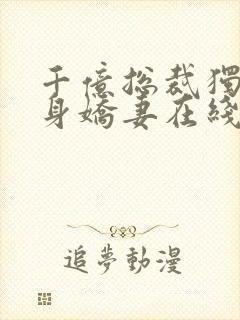 千億總裁獨
身嬌妻在綫
追夢動漫